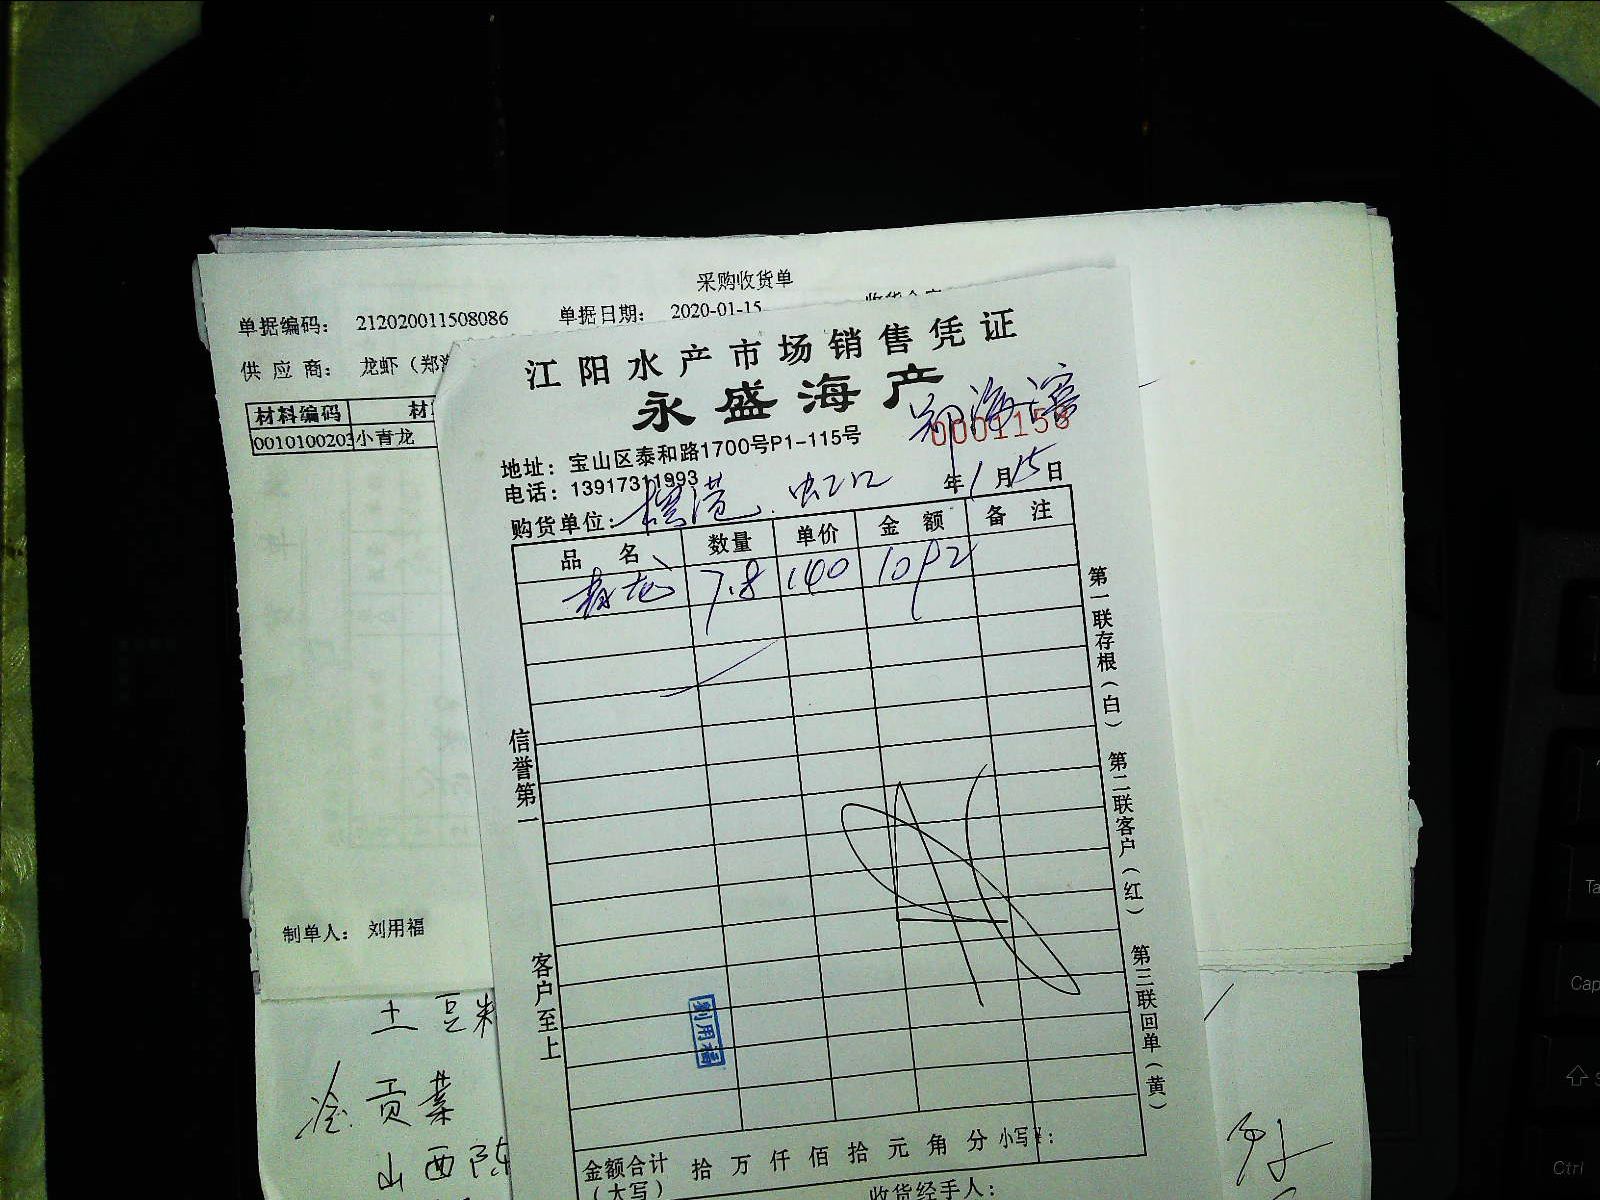 采购收货单
单据编码: 212020011508086 单据日期: 2020-01-15
供应商: 龙虾(郑海
材料编码 材
0010100203 小青龙
江阳水产市场销售凭证
永盛海产
郑海
0001156
地址: 宝山区泰和路1700号P1-115号
电话: 13917311993
购货单位: 虹口 年1月15日
品名 数量 单价 金额 备注
青龙 7.8 140 1092
信誉第一
客户至上
第一联存根(白)
第二联客户(红)
第三联回单(黄)
刘用福
金额合计(大写) 拾 万 仟 佰 拾 元 角 分 小写¥:
收货经手人:
制单人: 刘用福
土豆粉
冷 贡菜
山西陈